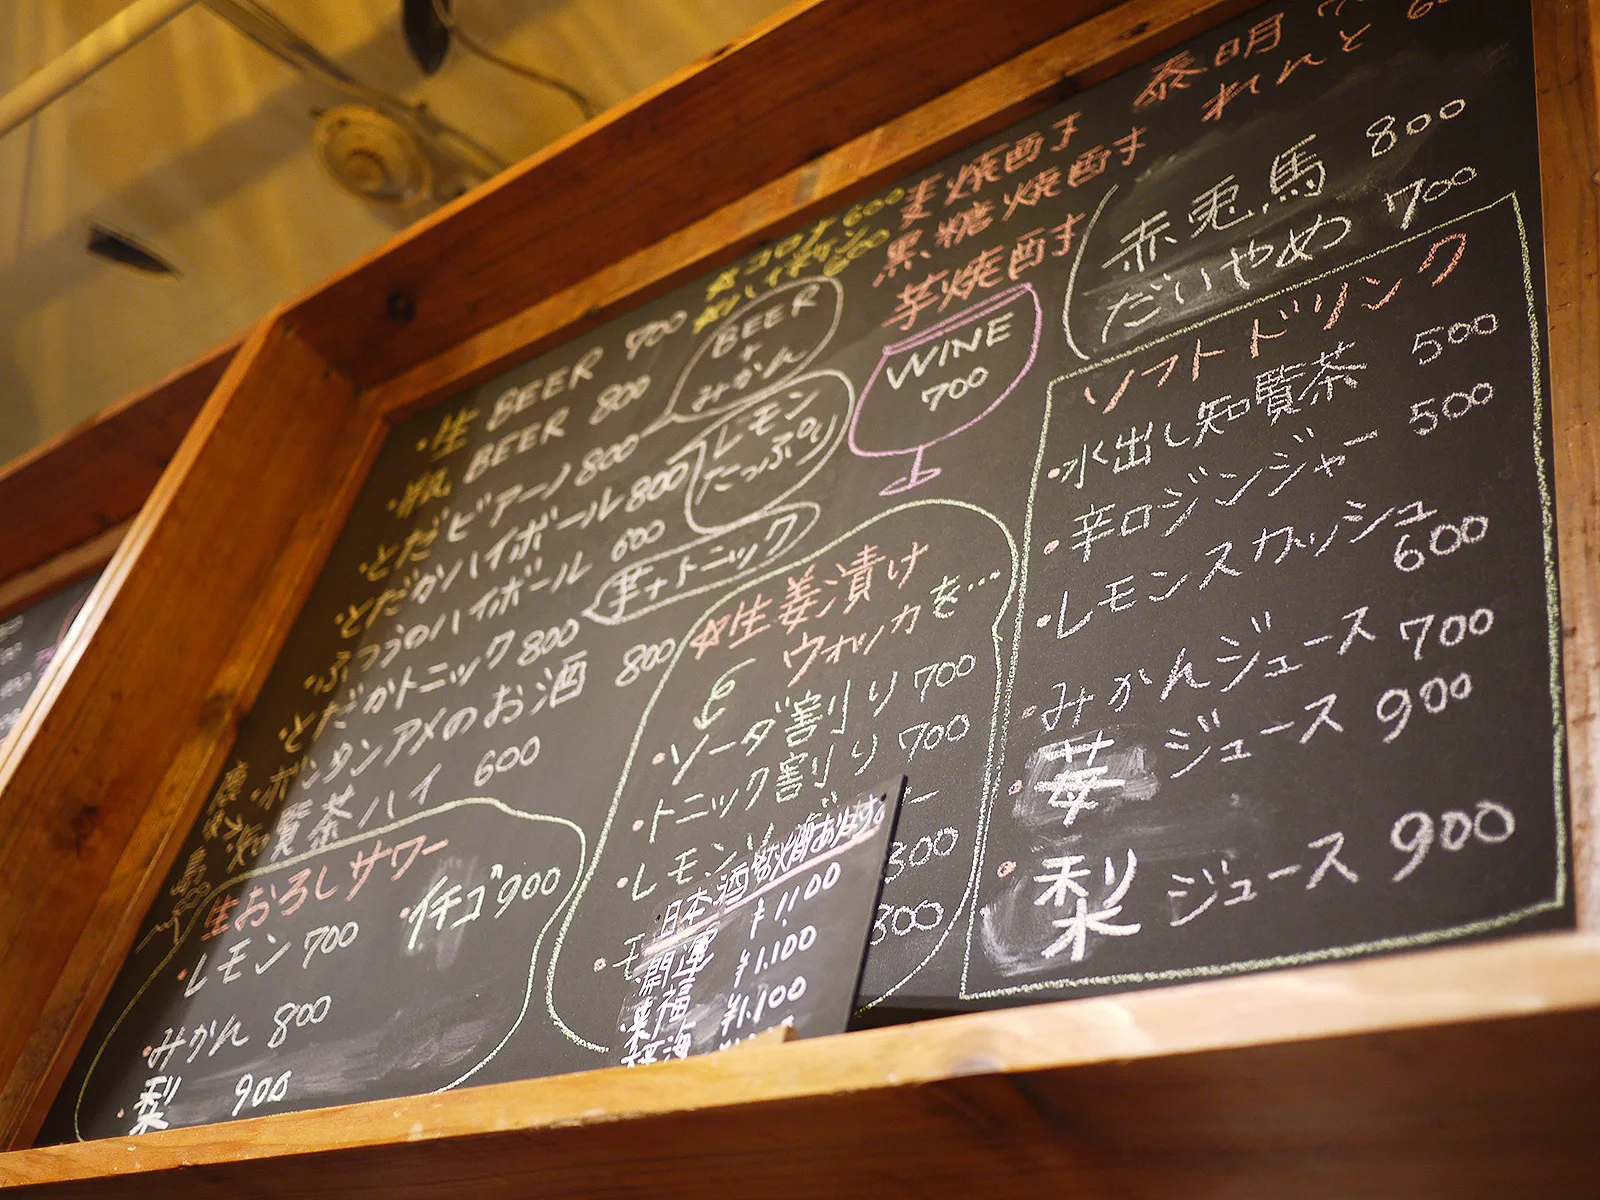 ・生 BEER 700
・瓶 BEER 800
・とだビアーノ 800
・とだかハイボール 800
・ふつうのハイボール 600
・とだかトニック 800
・ボンタンアメのお酒 800
賢茶ハイ 600
コロナ 600
BEER
+
みかん
レモン
たっぷり
芋+トニック
WINE
700
麦焼酎す
黒糖焼酎す
芋焼酎す
泰明
れんと
赤兎馬 800
だいやめ 700
生おろしサワー
・レモン 700
・イチゴ 900
・みかん 800
・梨 900
☆生姜漬け
ウォッカを…
・ソーダ割り 700
・トニック割り 700
・レモン
800
モ
800
日本酒
開運 ¥1,100
¥1,100
¥1,100
ソフトドリンク
・水出し知覧茶 500
・辛口ジンジャー 500
・レモンスカッシュ
600
・みかんジュース 700
・苺ジュース 900
・梨ジュース 900